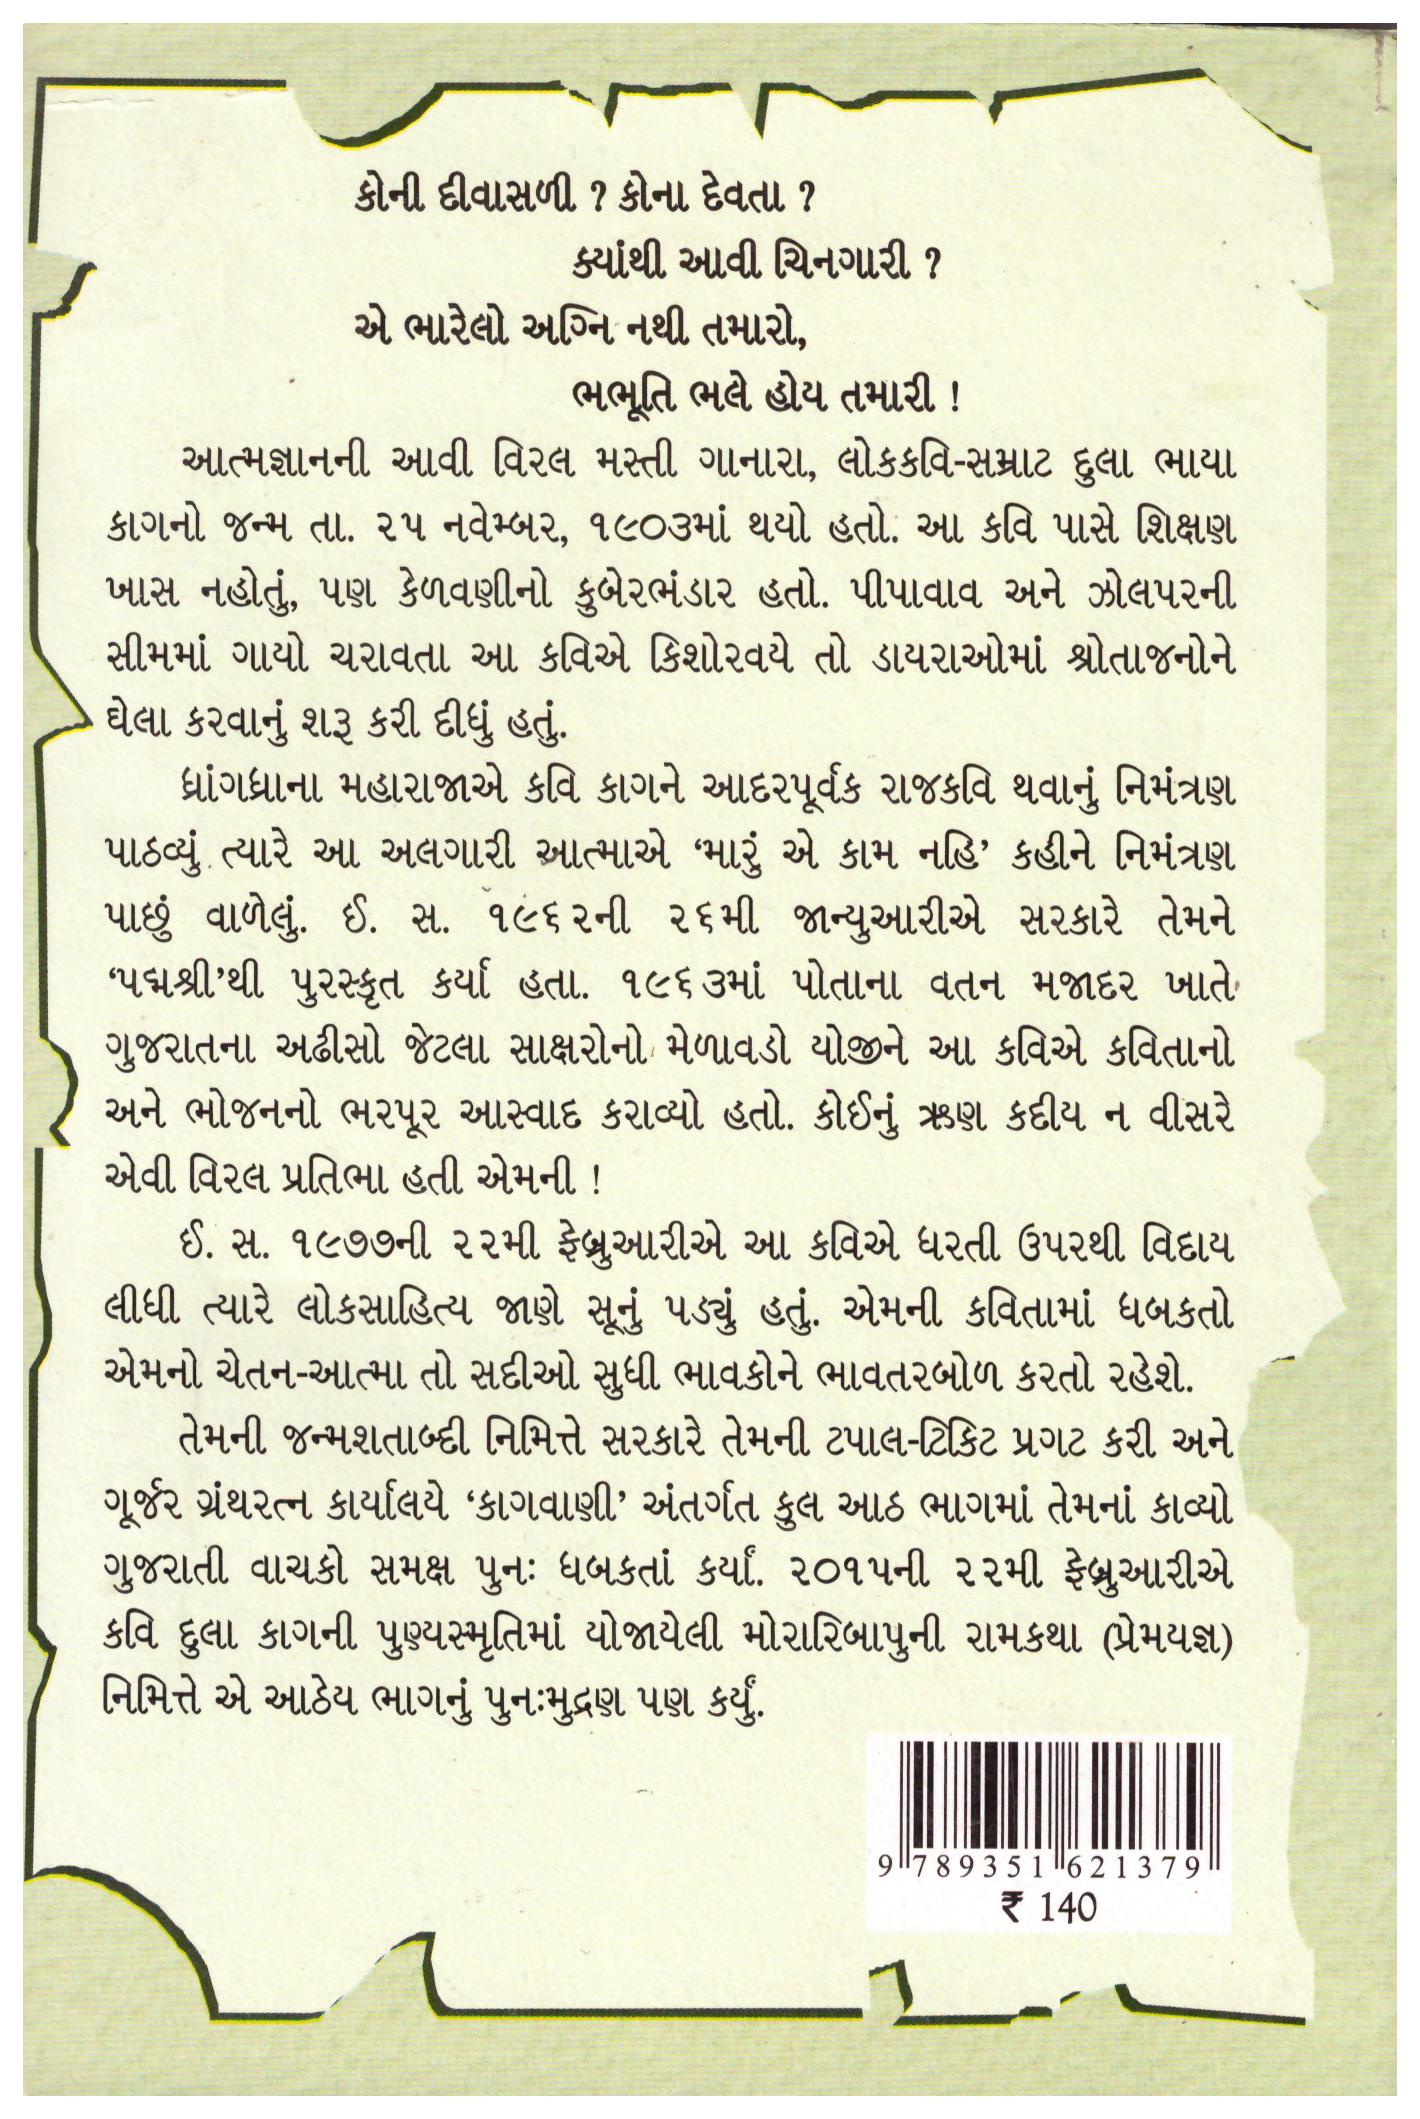 કોની દીવાસળી ? કોના દેવતા ?
ક્યાંથી આવી ચિનગારી ?
એ ભારેલો અગ્નિ નથી તમારો,
ભભૂતિ ભલે હોય તમારી !
આત્મજ્ઞાનની આવી વિરલ મસ્તી ગાનારા, લોકકવિ-સમ્રાટ દુલા ભાયા
કાગનો જન્મ તા. ૨૫ નવેમ્બર, ૧૯૦૩માં થયો હતો. આ કવિ પાસે શિક્ષણ
ખાસ નહોતું, પણ કેળવણીનો કુબેરભંડાર હતો. પીપાવાવ અને ઝોલપરની
સીમમાં ગાયો ચરાવતા આ કવિએ કિશોરવયે તો ડાયરાઓમાં શ્રોતાજનોને
ઘેલા કરવાનું શરૂ કરી દીધું હતું.
ધ્રાંગધ્રાના મહારાજાએ કવિ કાગને આદરપૂર્વક રાજકવિ થવાનું નિમંત્રણ
પાઠવ્યું ત્યારે આ અલગારી આત્માએ ‘મારું એ કામ નહિ’ કહીને નિમંત્રણ
પાછું વાળેલું. ઈ. સ. ૧૯૬૨ની ૨૬મી જાન્યુઆરીએ સરકારે તેમને
‘પદ્મશ્રી’થી પુરસ્કૃત કર્યા હતા. ૧૯૬૩માં પોતાના વતન મજાદર ખાતે
ગુજરાતના અઢીસો જેટલા સાક્ષરોનો મેળાવડો યોજીને આ કવિએ કવિતાનો
અને ભોજનનો ભરપૂર આસ્વાદ કરાવ્યો હતો. કોઈનું ઋણ કદીય ન વીસરે
એવી વિરલ પ્રતિભા હતી એમની !
ઈ. સ. ૧૯૭૭ની ૨૨મી ફેબ્રુઆરીએ આ કવિએ ધરતી ઉપરથી વિદાય
લીધી ત્યારે લોકસાહિત્ય જાણે સૂનું પડ્યું હતું. એમની કવિતામાં ધબકતો
એમનો ચેતન-આત્મા તો સદીઓ સુધી ભાવકોને ભાવતરબોળ કરતો રહેશે.
તેમની જન્મશતાબ્દી નિમિત્તે સરકારે તેમની ટપાલ-ટિકિટ પ્રગટ કરી અને
ગૂર્જર ગ્રંથરત્ન કાર્યાલયે ‘કાગવાણી’ અંતર્ગત કુલ આઠ ભાગમાં તેમનાં કાવ્યો
ગુજરાતી વાચકો સમક્ષ પુનઃ ધબકતાં કર્યાં. ૨૦૧૫ની ૨૨મી ફેબ્રુઆરીએ
કવિ દુલા કાગની પુણ્યસ્મૃતિમાં યોજાયેલી મોરારિબાપુની રામકથા (પ્રેમયજ્ઞ)
નિમિત્તે એ આઠેય ભાગનું પુનઃમુદ્રણ પણ કર્યું.
9 789351 621379
₹ 140